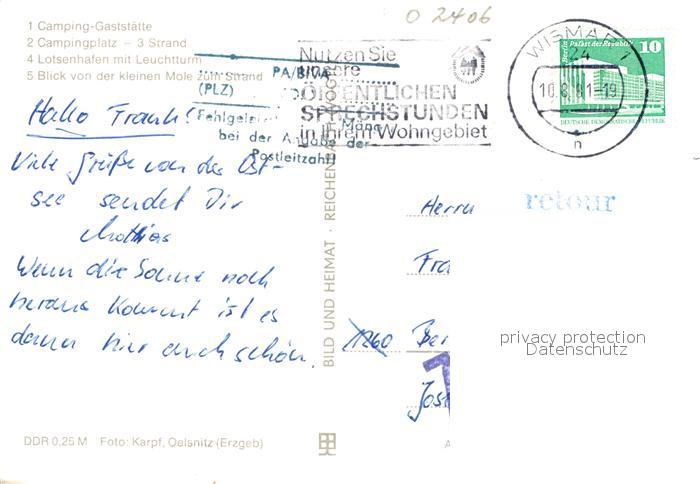 O 2406
1 Camping-Gaststätte
2 Campingplatz – 3 Strand
4 Lotsenhafen mit Leuchtturm
5 Blick von der kleinen Mole zum Strand
PA/BfVA
(PLZ)
Fehlgelei
Mängel
bei der Angabe der
Postleitzahl!
Nutzen Sie
unsere
ÖFFENTLICHEN
SPRECHSTUNDEN
in Ihrem Wohngebiet
WISMAR 1
24
10.8.81-19
n
Berlin, Palast der Republik
10
DEUTSCHE DEMOKRATISCHE REPUBLIK
Hallo Frank!
Viele Grüße von der Ost-
see sendet Dir
Mathias
Wenn die Sonne noch
heraus kommt ist es
dann hier auch schön.
BILD UND HEIMAT · REICHENBACH
retour
Herrn
Fra
1260 Ber
Jos
privacy protection
Datenschutz
DDR 0,25 M Foto: Karpf, Oelsnitz (Erzgeb)
A